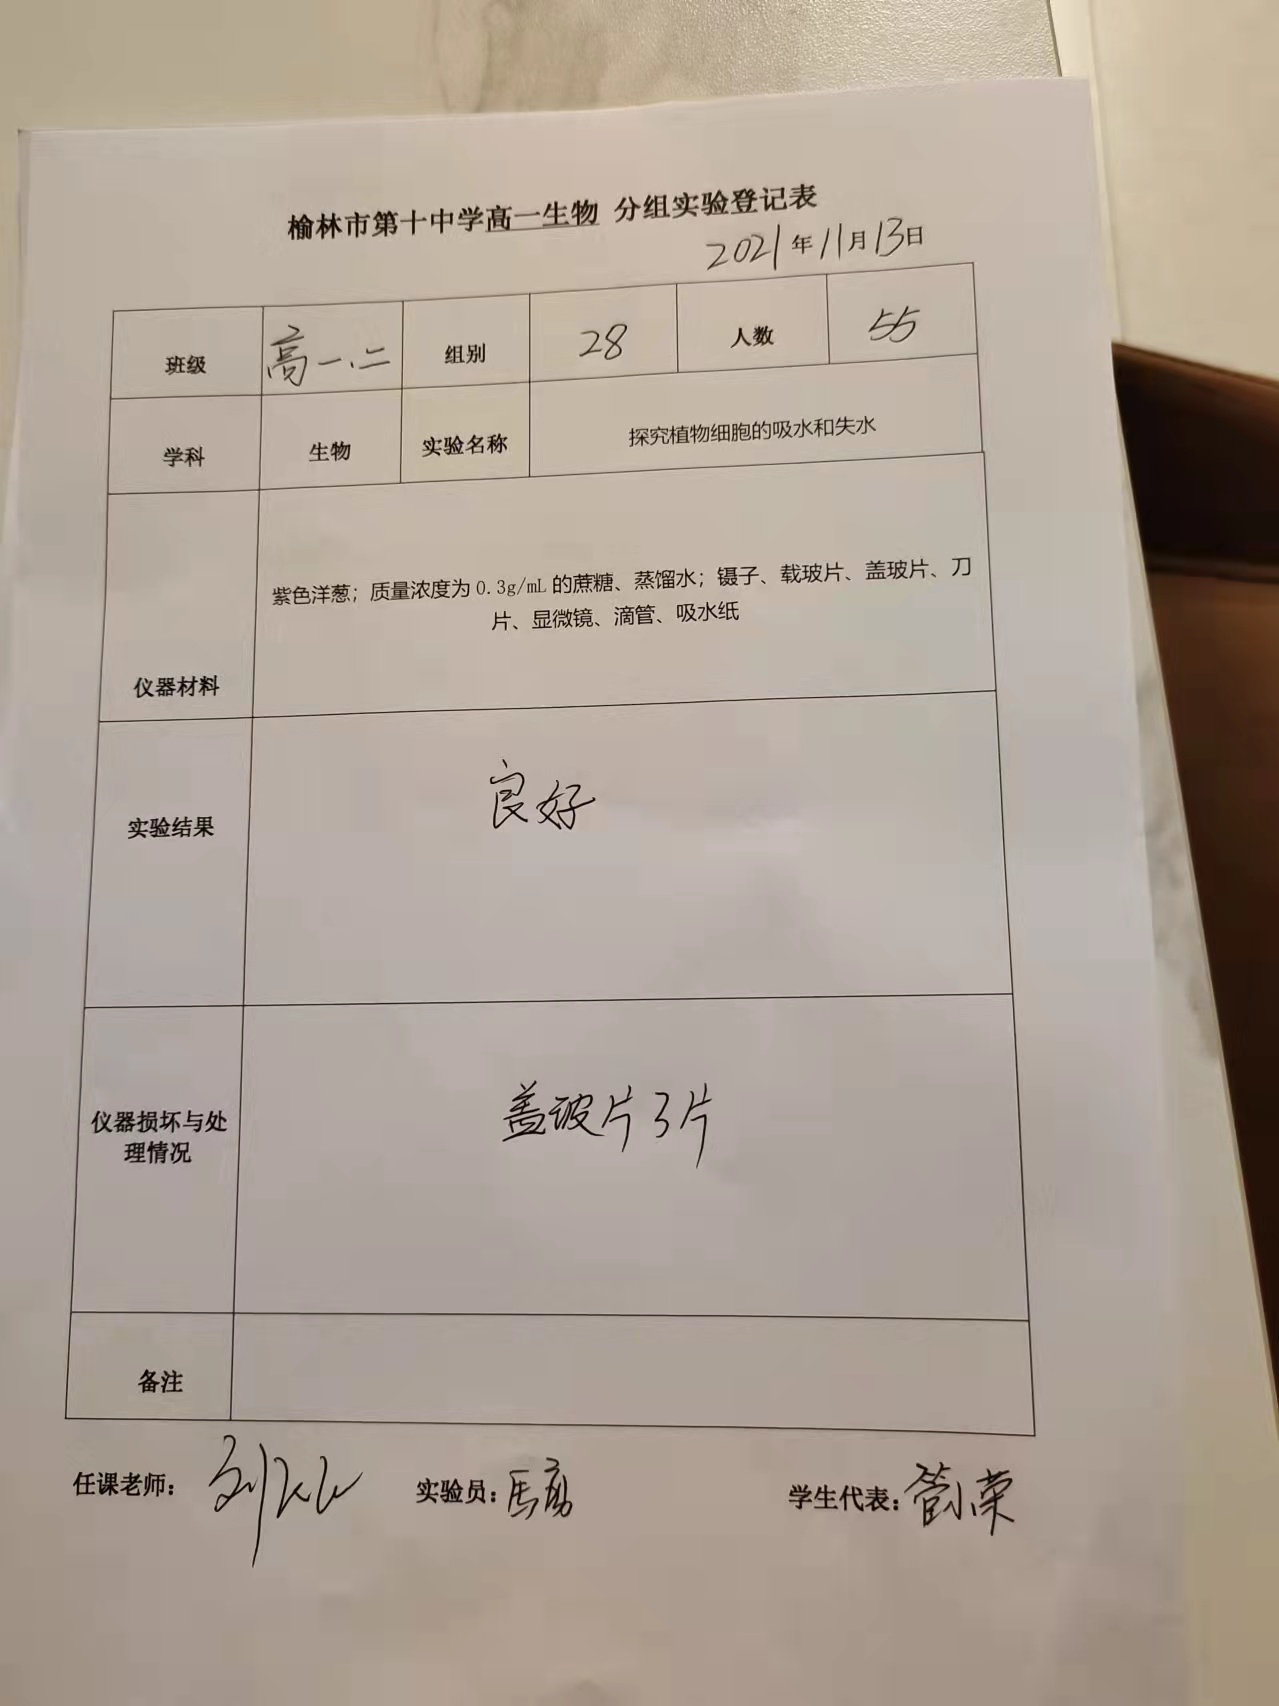 榆林市第十中学高一生物 分组实验登记表
2021年11月13日
班级 高一.二 组别 28 人数 55
学科 生物 实验名称 探究植物细胞的吸水和失水
紫色洋葱；质量浓度为 0.3g/mL 的蔗糖、蒸馏水；镊子、载玻片、盖玻片、刀
片、显微镜、滴管、吸水纸
仪器材料
实验结果 良好
仪器损坏与处
理情况
盖玻片3片
备注
任课老师： 刘 实验员：马 学生代表：荣